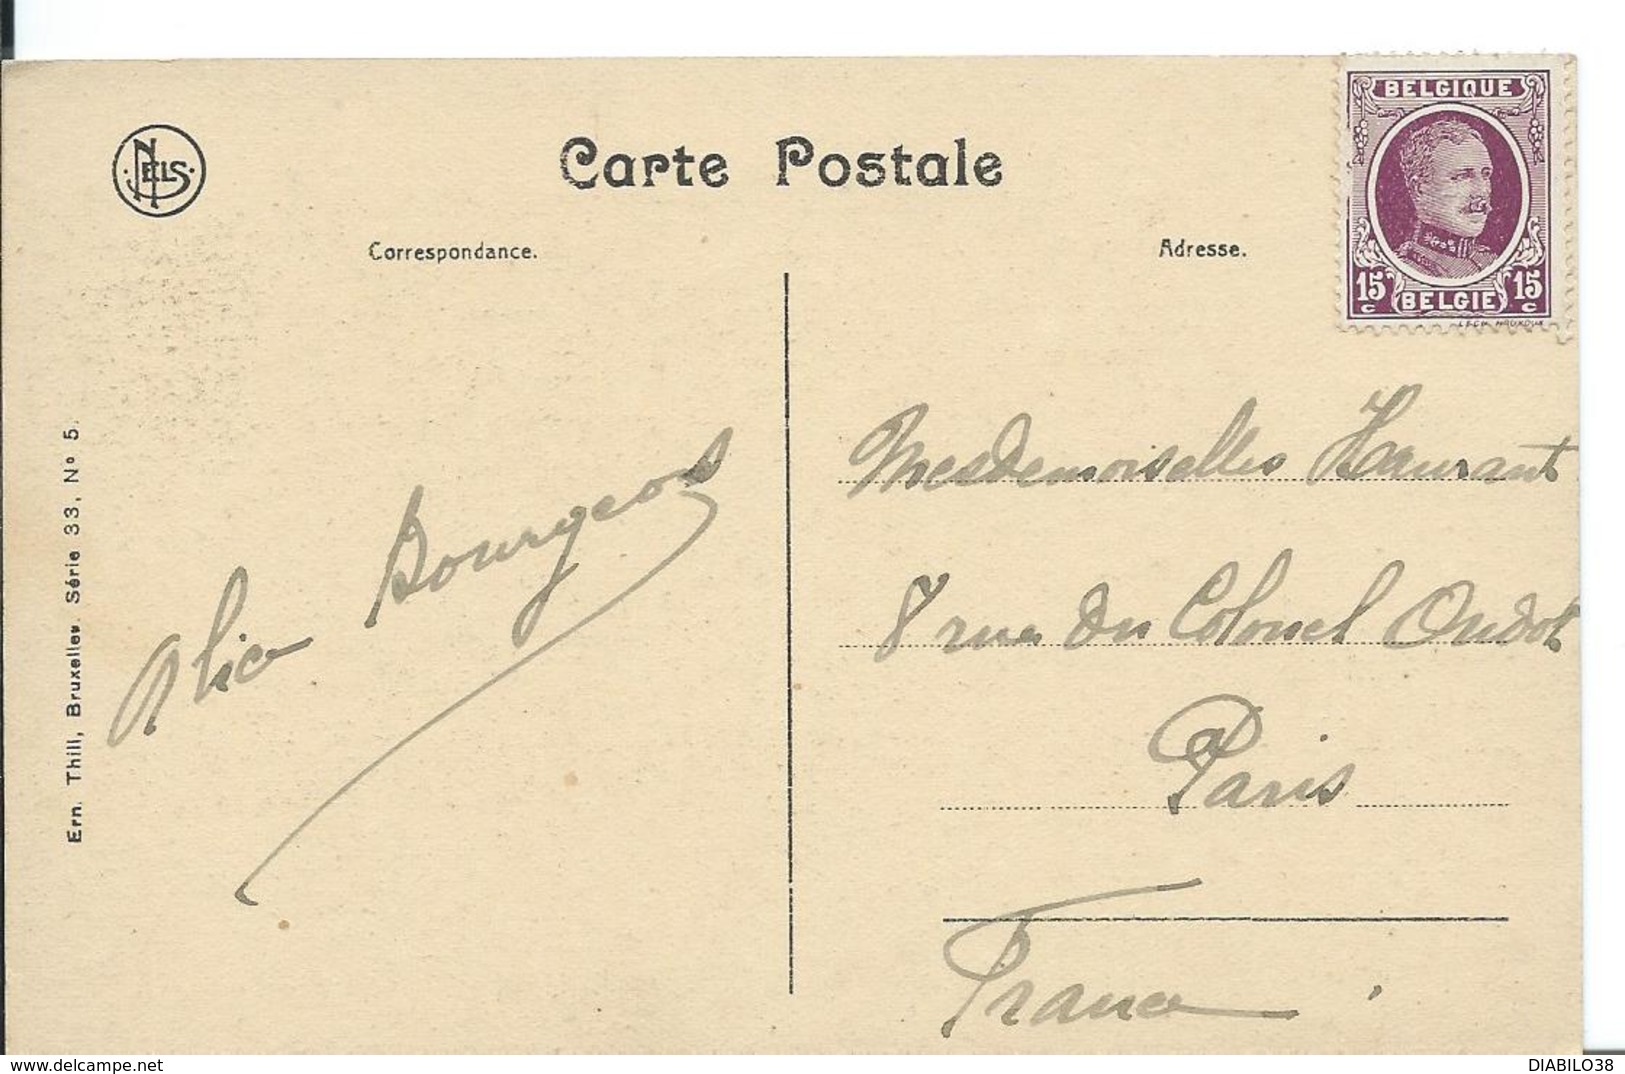 NELS
Carte Postale
Correspondance.
Adresse.
BELGIQUE
15 c BELGIE 15 c
Ern. Thill, Bruxelles Série 33, No 5.
Alice Bourgeois
Mesdemoiselles Haurant
8 rue du Colonel Oudot
Paris
France.
DIABILO38